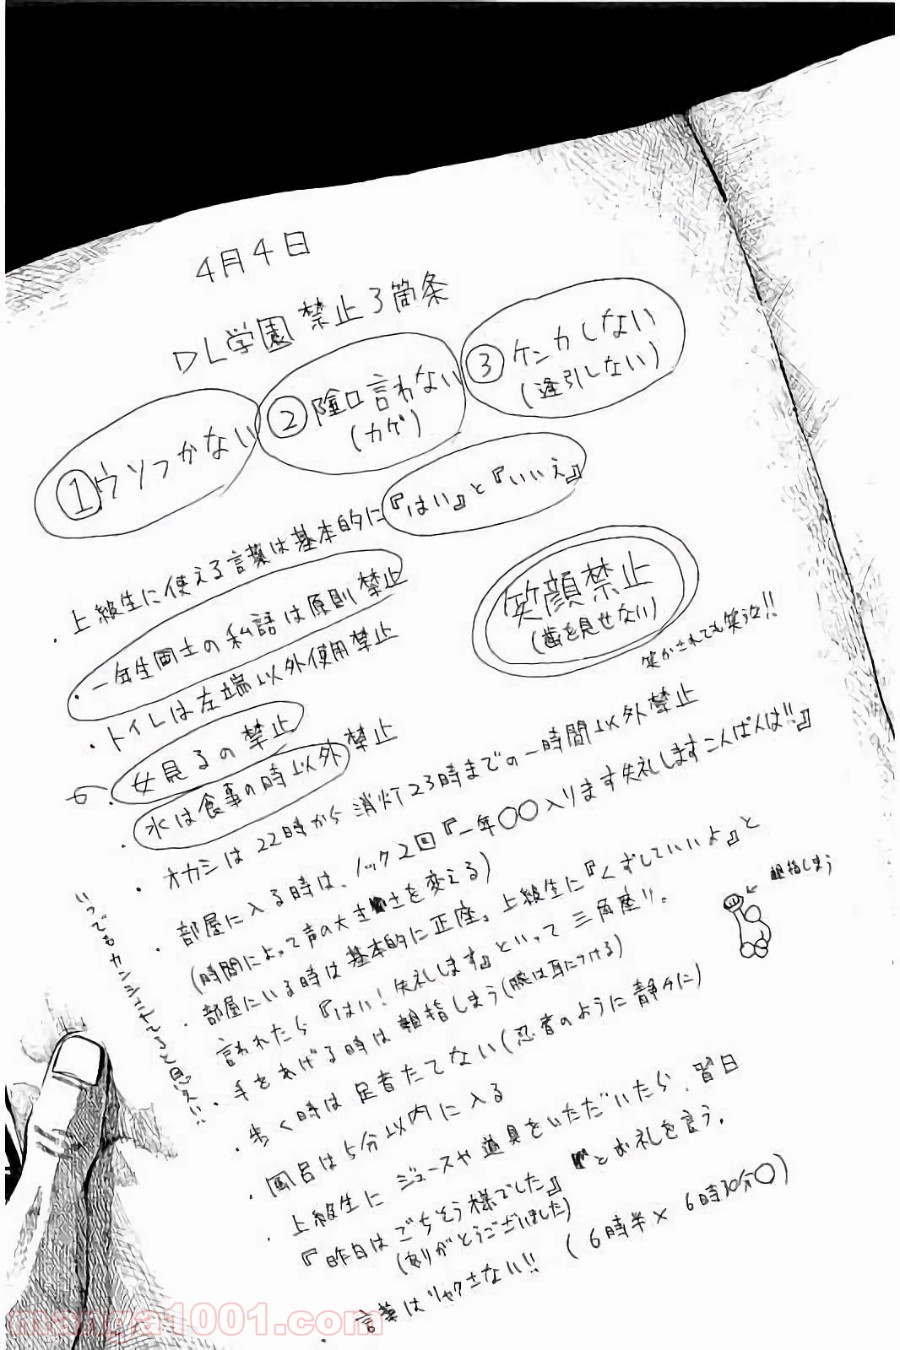 4月4日
DL学園 禁止3箇条
①ウソつかない
②陰口言わない
(カゲ)
③ケンカしない
(逢引しない)
・上級生に使える言葉は基本的に『はい』と『いいえ』
・一年生同士の私語は原則禁止
笑顔禁止
(歯を見せない)
笑かされても笑うな!!
・トイレは左端以外使用禁止
・女見るの禁止
・水は食事の時以外禁止
・オカシは22時から消灯23時までの一時間以外禁止
・部屋に入る時は、ノック2回『一年〇〇入ります失礼しますこんばんは!!』
(時間によって声の大きさを変える)
・部屋にいる時は基本的に正座。上級生に『くずしていいよ』と
言われたら『はい!失礼します』といって三角座り。
・手をあげる時は親指しまう(腕は耳につける)
親指しまう
・歩く時は足音たてない(忍者のように静かに)
・風呂は5分以内に入る
・上級生にジュースや道具をいただいたら、翌日
『昨日はごちそう様でした』とお礼を言う。
(ありがとうございました)
・言葉はリャクさない!!(6時半× 6時30分〇)
いつでもカンシされてると思え!!
manga1001.com